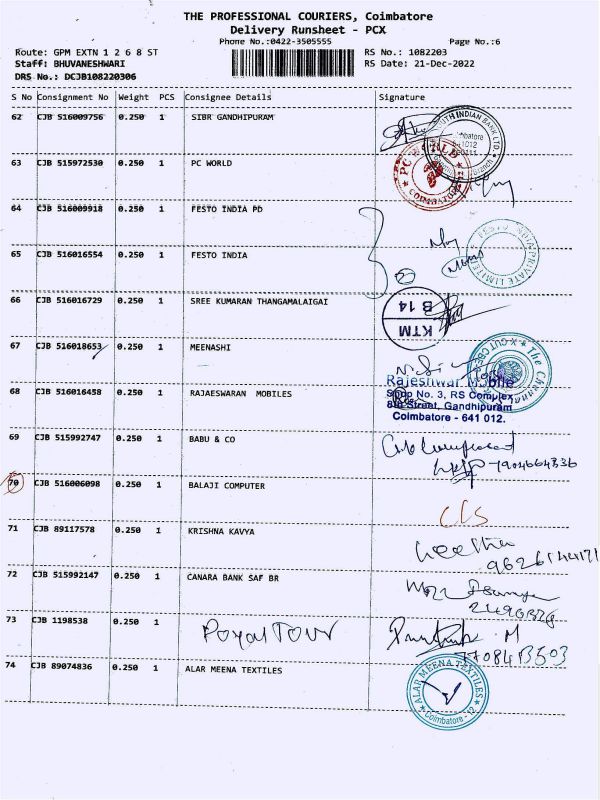 THE PROFESSIONAL COURIERS, Coimbatore
Delivery Runsheet - PCX
Phone No.:0422-3505555
Page No.:6
Route: GPM EXTN 1 2 6 8 ST
RS No.: 1082203
Staff: BHUVANESHWARI
RS Date: 21-Dec-2022
DRS No.: DCJB108220306
S No Consignment No Weight PCS Consignee Details Signature
62 CJB 516009756 0.250 1 SIBR GANDHIPURAM
63 CJB 515972530 0.250 1 PC WORLD
PC WORLD
COIMBATORE-12
64 CJB 516009918 0.250 1 FESTO INDIA PD
65 CJB 516016554 0.250 1 FESTO INDIA
66 CJB 516016729 0.250 1 SREE KUMARAN THANGAMALAIGAI
KTM
B 14
67 CJB 516018653 0.250 1 MEENASHI
68 CJB 516016458 0.250 1 RAJAESWARAN MOBILES
Rajeshwar Mobile
Shop No. 3, RS Complex
8th Street, Gandhipuram
Coimbatore - 641 012.
69 CJB 515992747 0.250 1 BABU & CO
70 CJB 516006098 0.250 1 BALAJI COMPUTER
71 CJB 89117578 0.250 1 KRISHNA KAVYA
72 CJB 515992147 0.250 1 CANARA BANK SAF BR
73 CJB 1198538 0.250 1 Poyal Tour
74 CJB 89074836 0.250 1 ALAR MEENA TEXTILES
ALAR MEENA TEXTILES
Coimbatore - 12